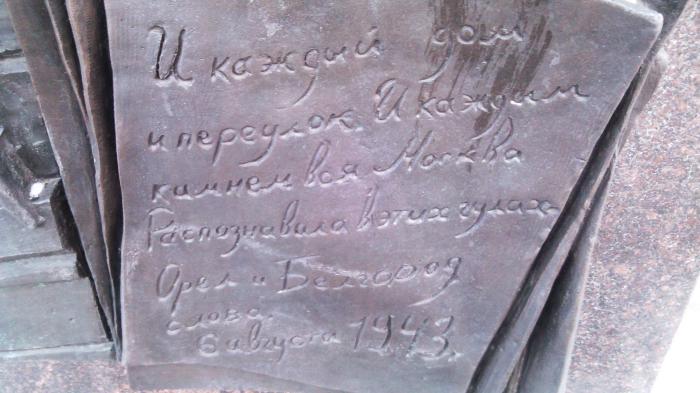 И каждый дом
и переулок. И каждым
камнем вся Москва
Распознавала в этих гулах-
Орел и Белгород
слова.
6 августа 1943.